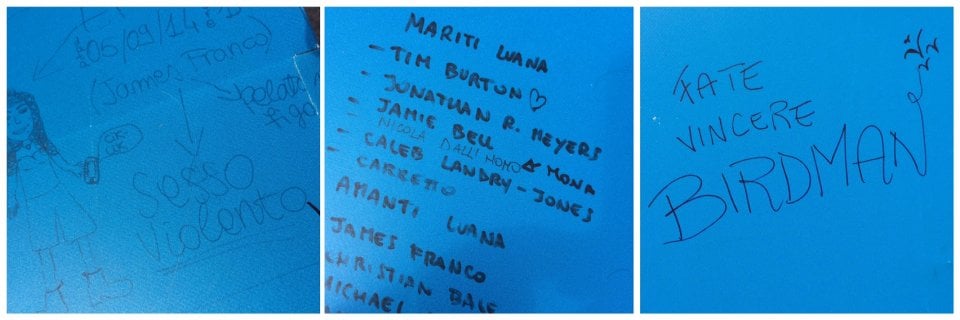 05/09/14
(James Franco)
pelato
figo
OK
OK
Sesso
violento
MARITI LUANA
- TIM BURTON ♡
- JONATHAN R. MEYERS
- JAMIE BELL
NICOLA DALL'HOMO MONA
- CALEB LANDRY-JONES
- CARRETTO
AMANTI LUANA
JAMES FRANCO
CHRISTIAN BALE
MICHAEL
FATE
VINCERE
BIRDMAN